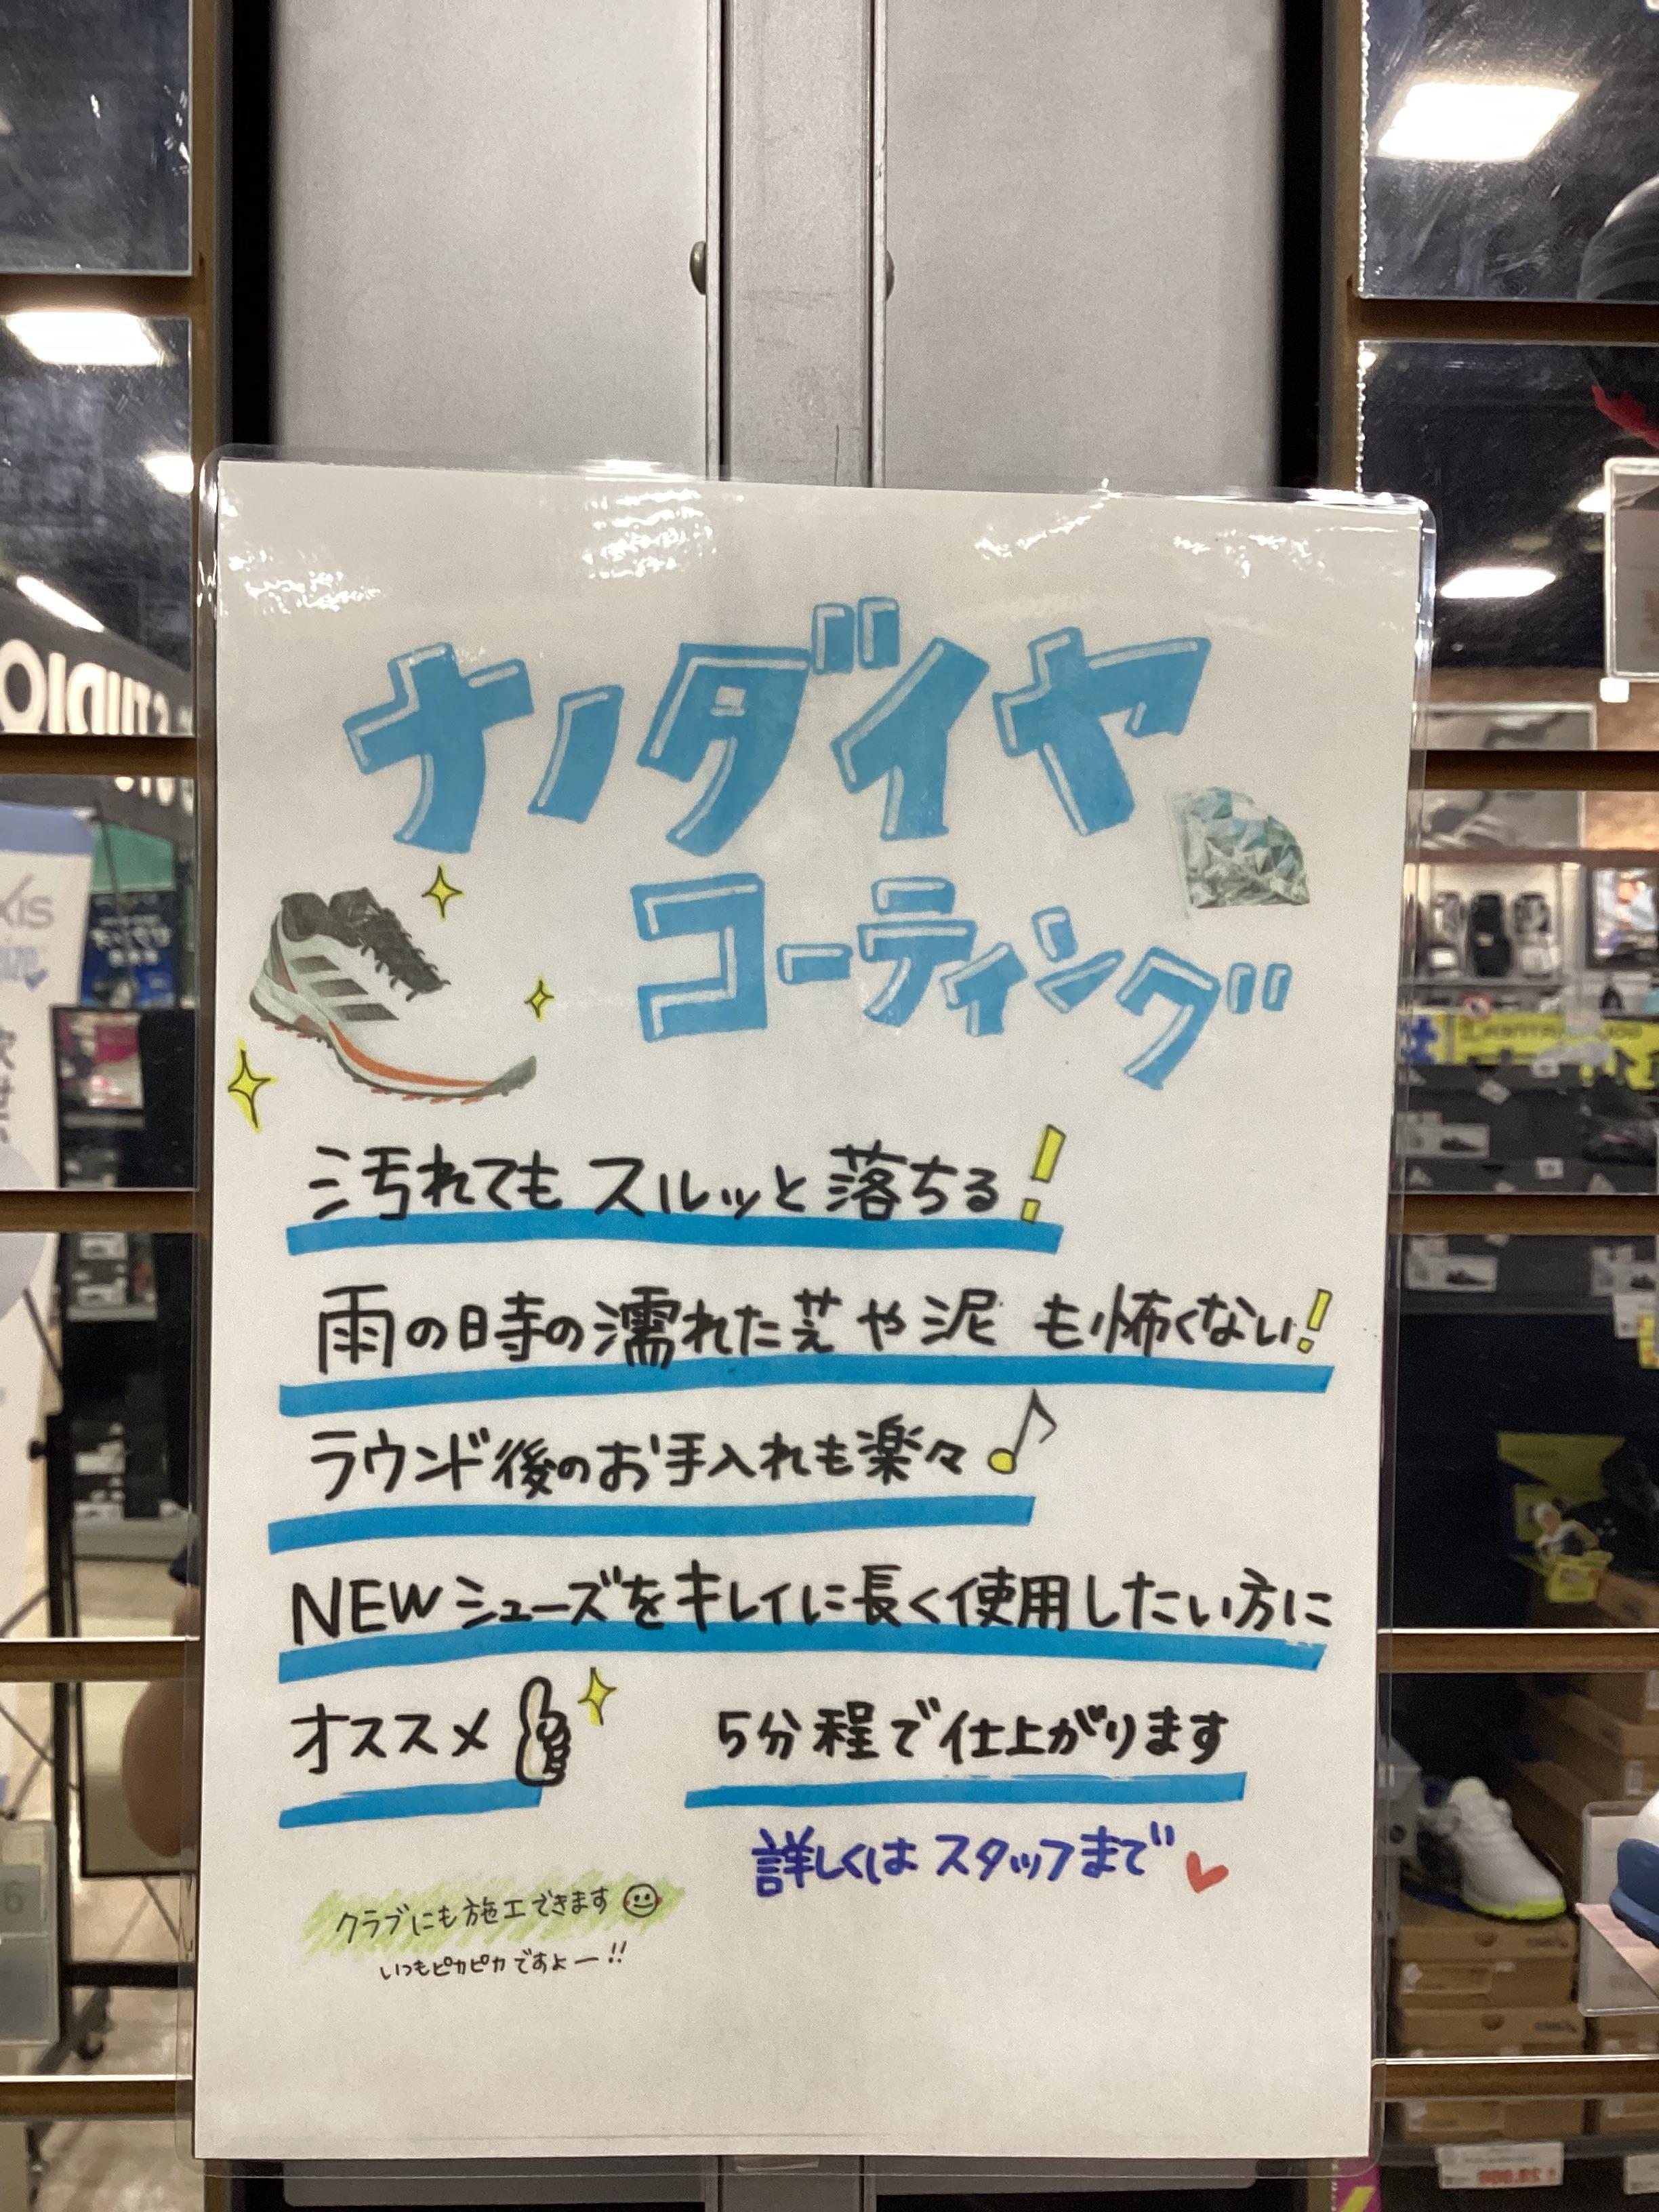 ナノダイヤ
コーティング
汚れてもスルッと落ちる!
雨の日時の濡れた芝や泥も怖くない!
ラウンド後のお手入れも楽々♪
NEWシューズをキレイに長く使用したい方に
オススメ 5分程で仕上がります
詳しくはスタッフまで
クラブにも施工できます
いつもピカピカですよー!!
STUDIO